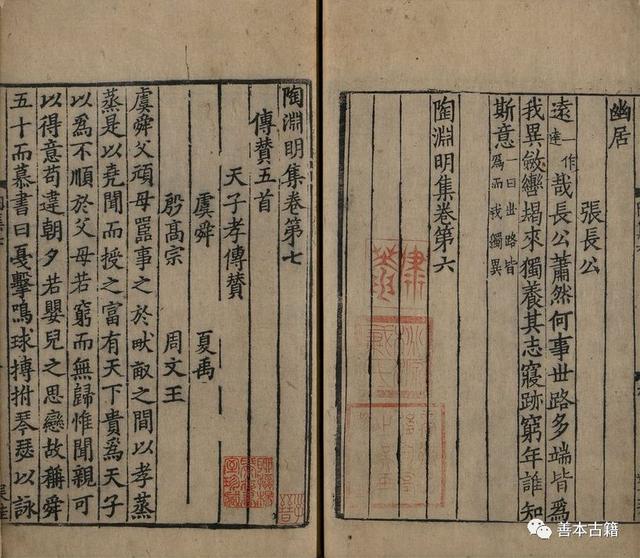 幽居
張長公
遠一作達哉長公蕭然何事世路多端皆為
我異斂轡朅來獨養其志寢跡窮年誰知
斯意一曰世路皆為而我獨異
陶淵明集卷第六
陶淵明集卷第七
傳贊五首
天子孝傳贊
虞舜 夏禹
殷髙宗 周文王
虞舜父頑母嚚事之於畎畝之間以孝蒸
蒸是以堯聞而授之富有天下貴為天子
以為不順於父母若窮而無歸惟聞親可
以得意苟違朝夕若嬰兒之思戀故稱舜
五十而慕書曰戞擊鳴球搏拊琴瑟以詠
善本古籍